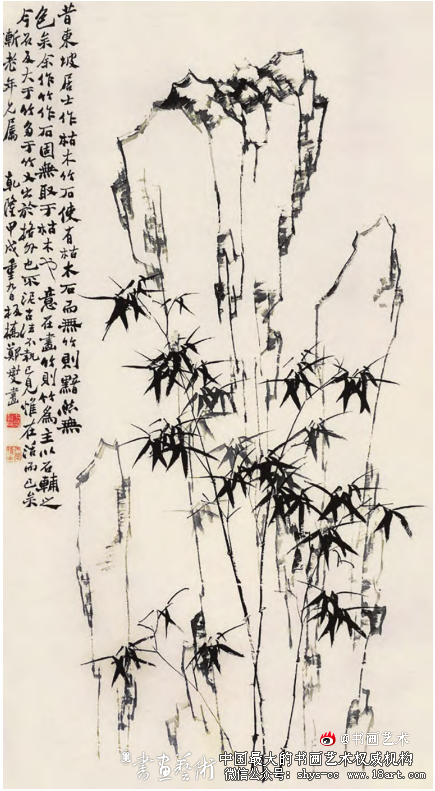 昔東坡居士作枯木竹石使有枯木石而無竹則黯然無
色矣余作竹作石固無取于枯木也意在畫竹則竹為主以石輔之
今石反大于竹多于竹又出於格外也不泥古法不執己見惟在活而已矣
漸老年兄屬 乾隆甲戌重九日板橋鄭燮畫
@书画艺术
書畫藝術
中国最大的书画艺术权威机构
微信公众号: shys-cc www.18art.com